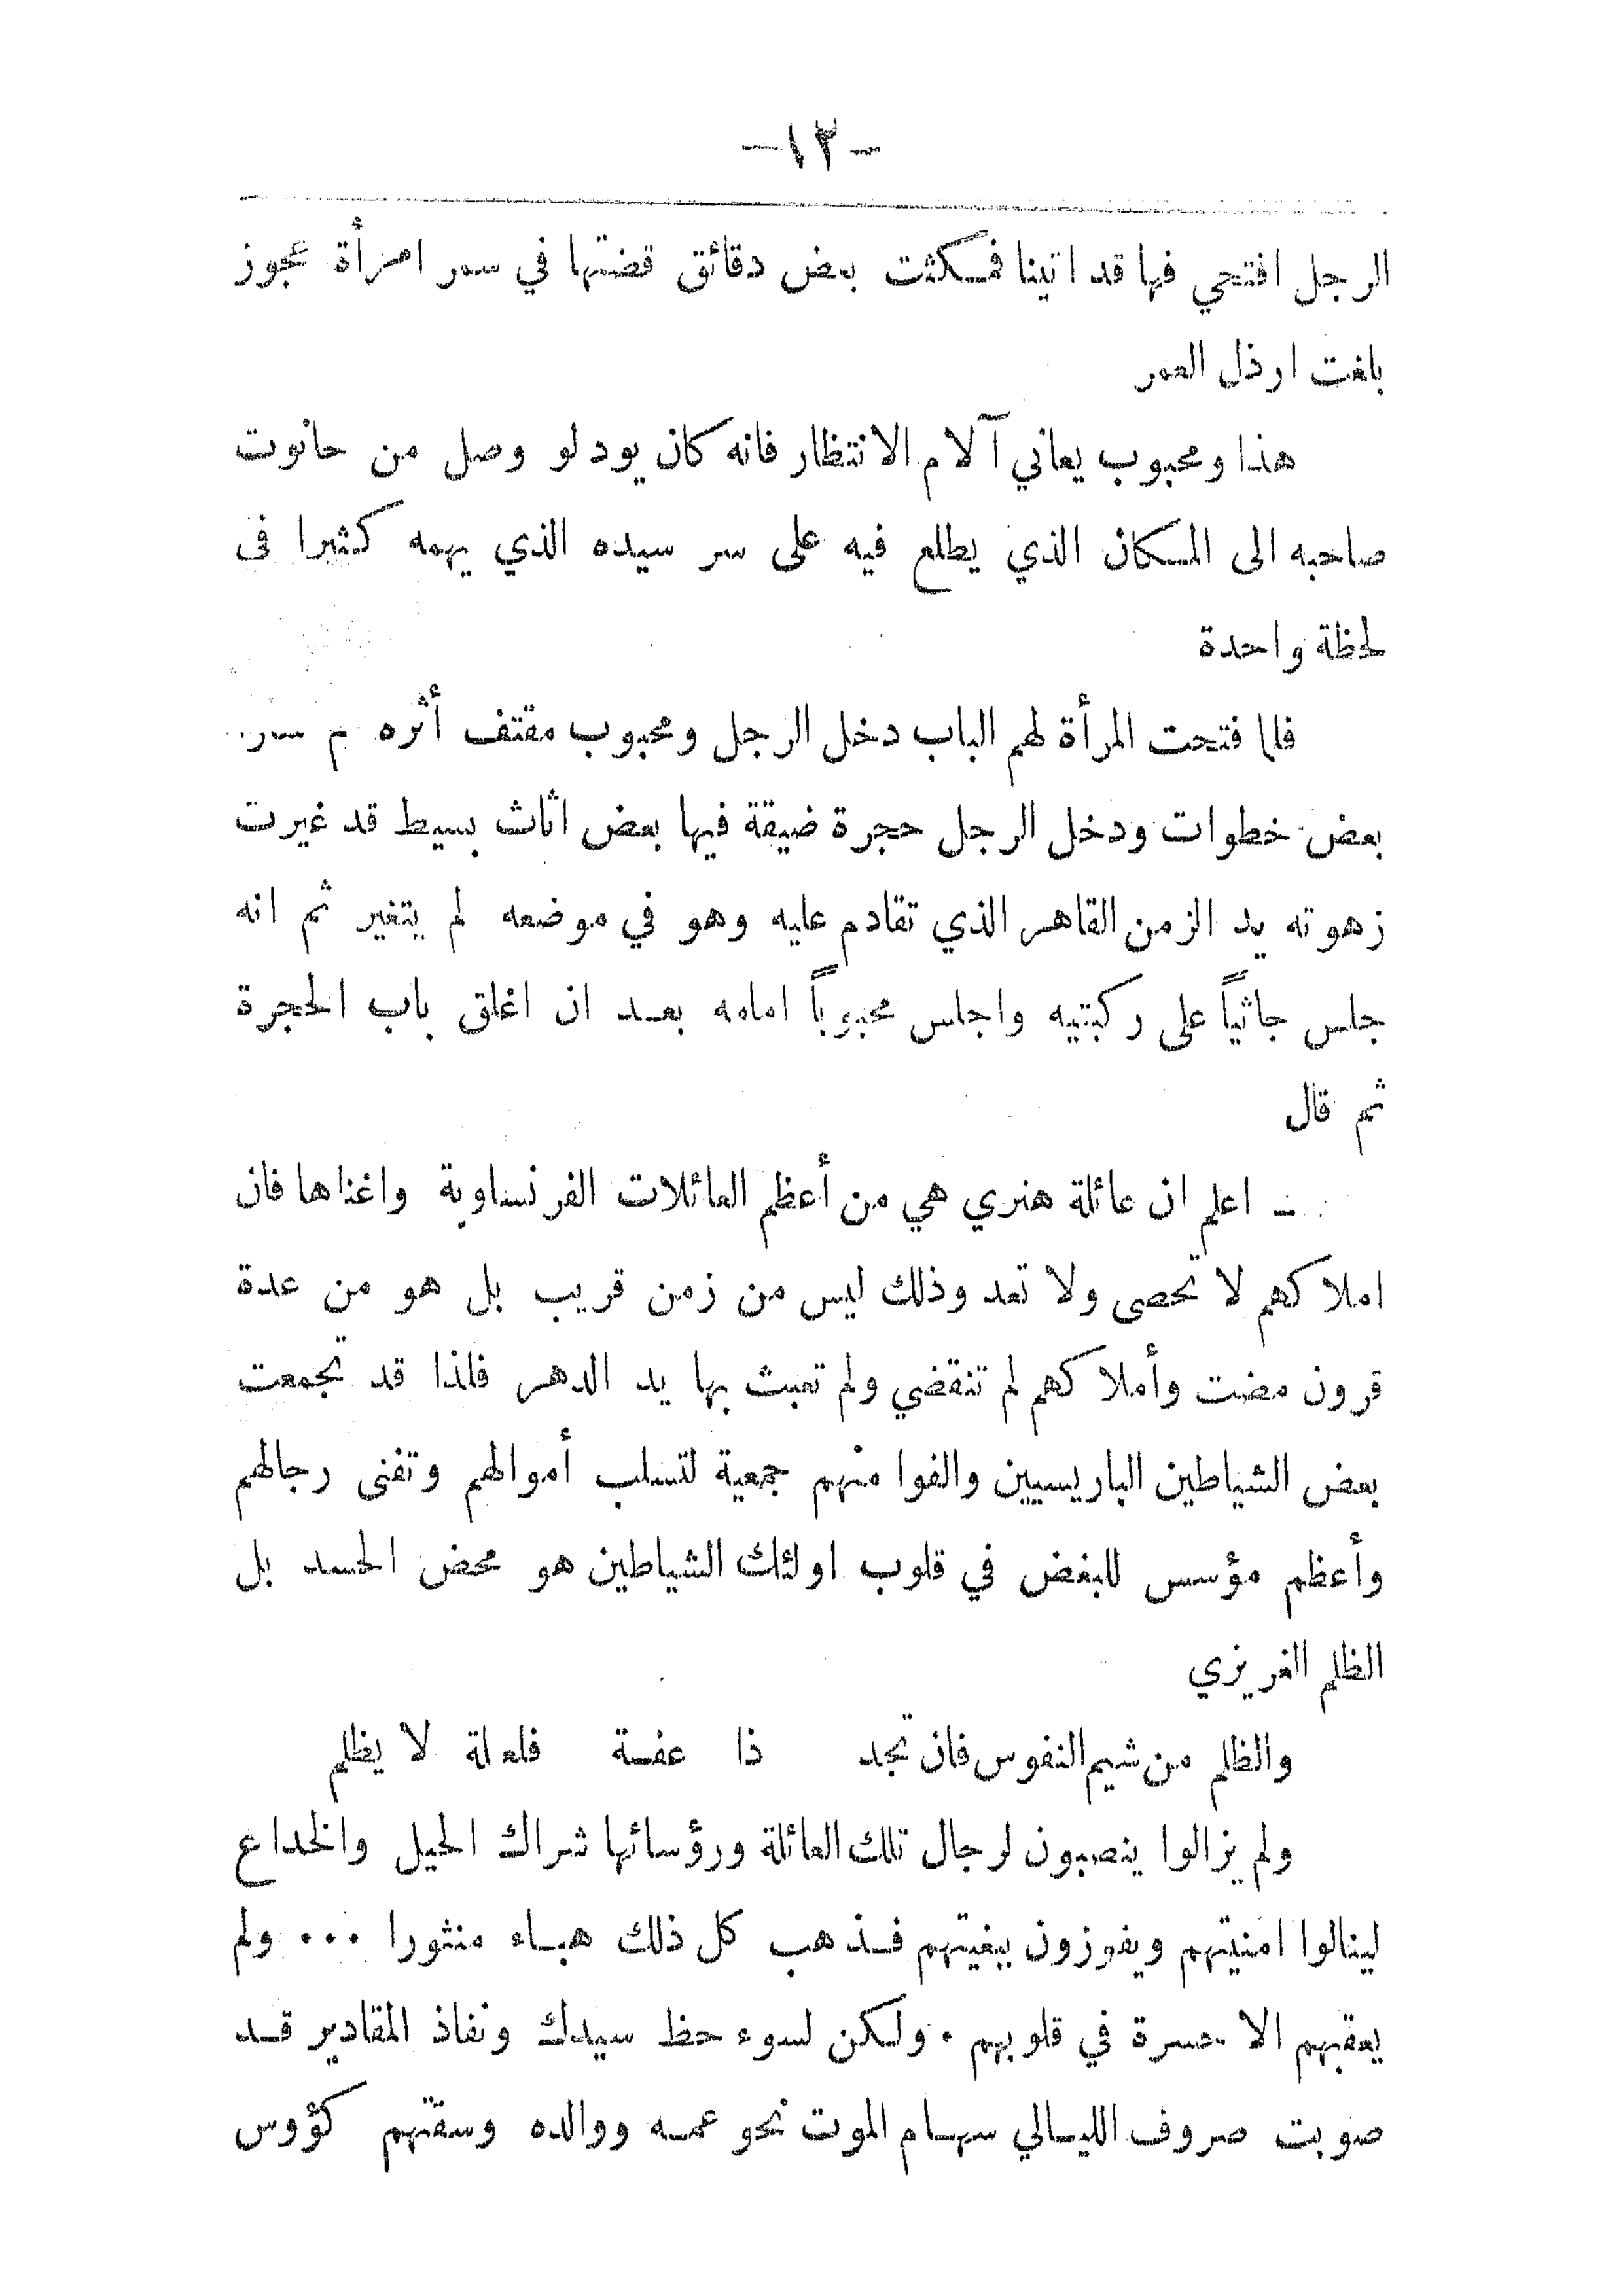 -١٢-
الرجل افتحي فها قد اتينا فمكثت بعض دقائق قضتها في سمر امرأة عجوز
بلغت ارذل العمر
هذا ومحبوب يعاني آلام الانتظار فانه كان يود لو وصل من حانوت
صاحبه الى المكان الذي يطلع فيه على سر سيده الذي يهمه كثيرا فى
لحظة واحدة
فلما فتحت المرأة لهم الباب دخل الرجل ومحبوب مقتف أثره
بعض خطوات ودخل الرجل حجرة ضيقة فيها بعض اثاث بسيط قد غيرت
زهوته يد الزمن القاهر الذي تقادم عليه وهو في موضعه لم يتغير ثم انه
جلس جاثياً على ركبتيه واجلس محبوباً امامه بعد ان اغلق باب الحجرة
ثم قال
ـ اعلم ان عائلة هنري هي من أعظم العائلات الفرنساوية واغناها فان
املاكهم لا تحصى ولا تعد وذلك ليس من زمن قريب بل هو من عدة
قرون مضت وأملاكهم لم تنقضي ولم تعبث بها يد الدهر فلذا قد تجمعت
بعض الشياطين الباريسيين والفوا منهم جمعية لتسلب أموالهم وتفنى رجالهم
وأعظم مؤسس للبغض في قلوب اولئك الشياطين هو محض الحسد بل
الظلم الغريزي
والظلم من شيم النفوس فان تجد ذا عفة فلعلة لا يظلم
ولم يزالوا ينصبون لرجال تلك العائلة ورؤسائها شراك الحيل والخداع
لينالوا امنيتهم ويفوزون ببغيتهم فذهب كل ذلك هباء منثورا ... ولم
يعقبهم الا حسرة في قلوبهم . ولكن لسوء حظ سيدك ونفاذ المقادير قد
صوبت صروف الليالي سهام الموت نحو عمه ووالده وسقتهم كؤوس